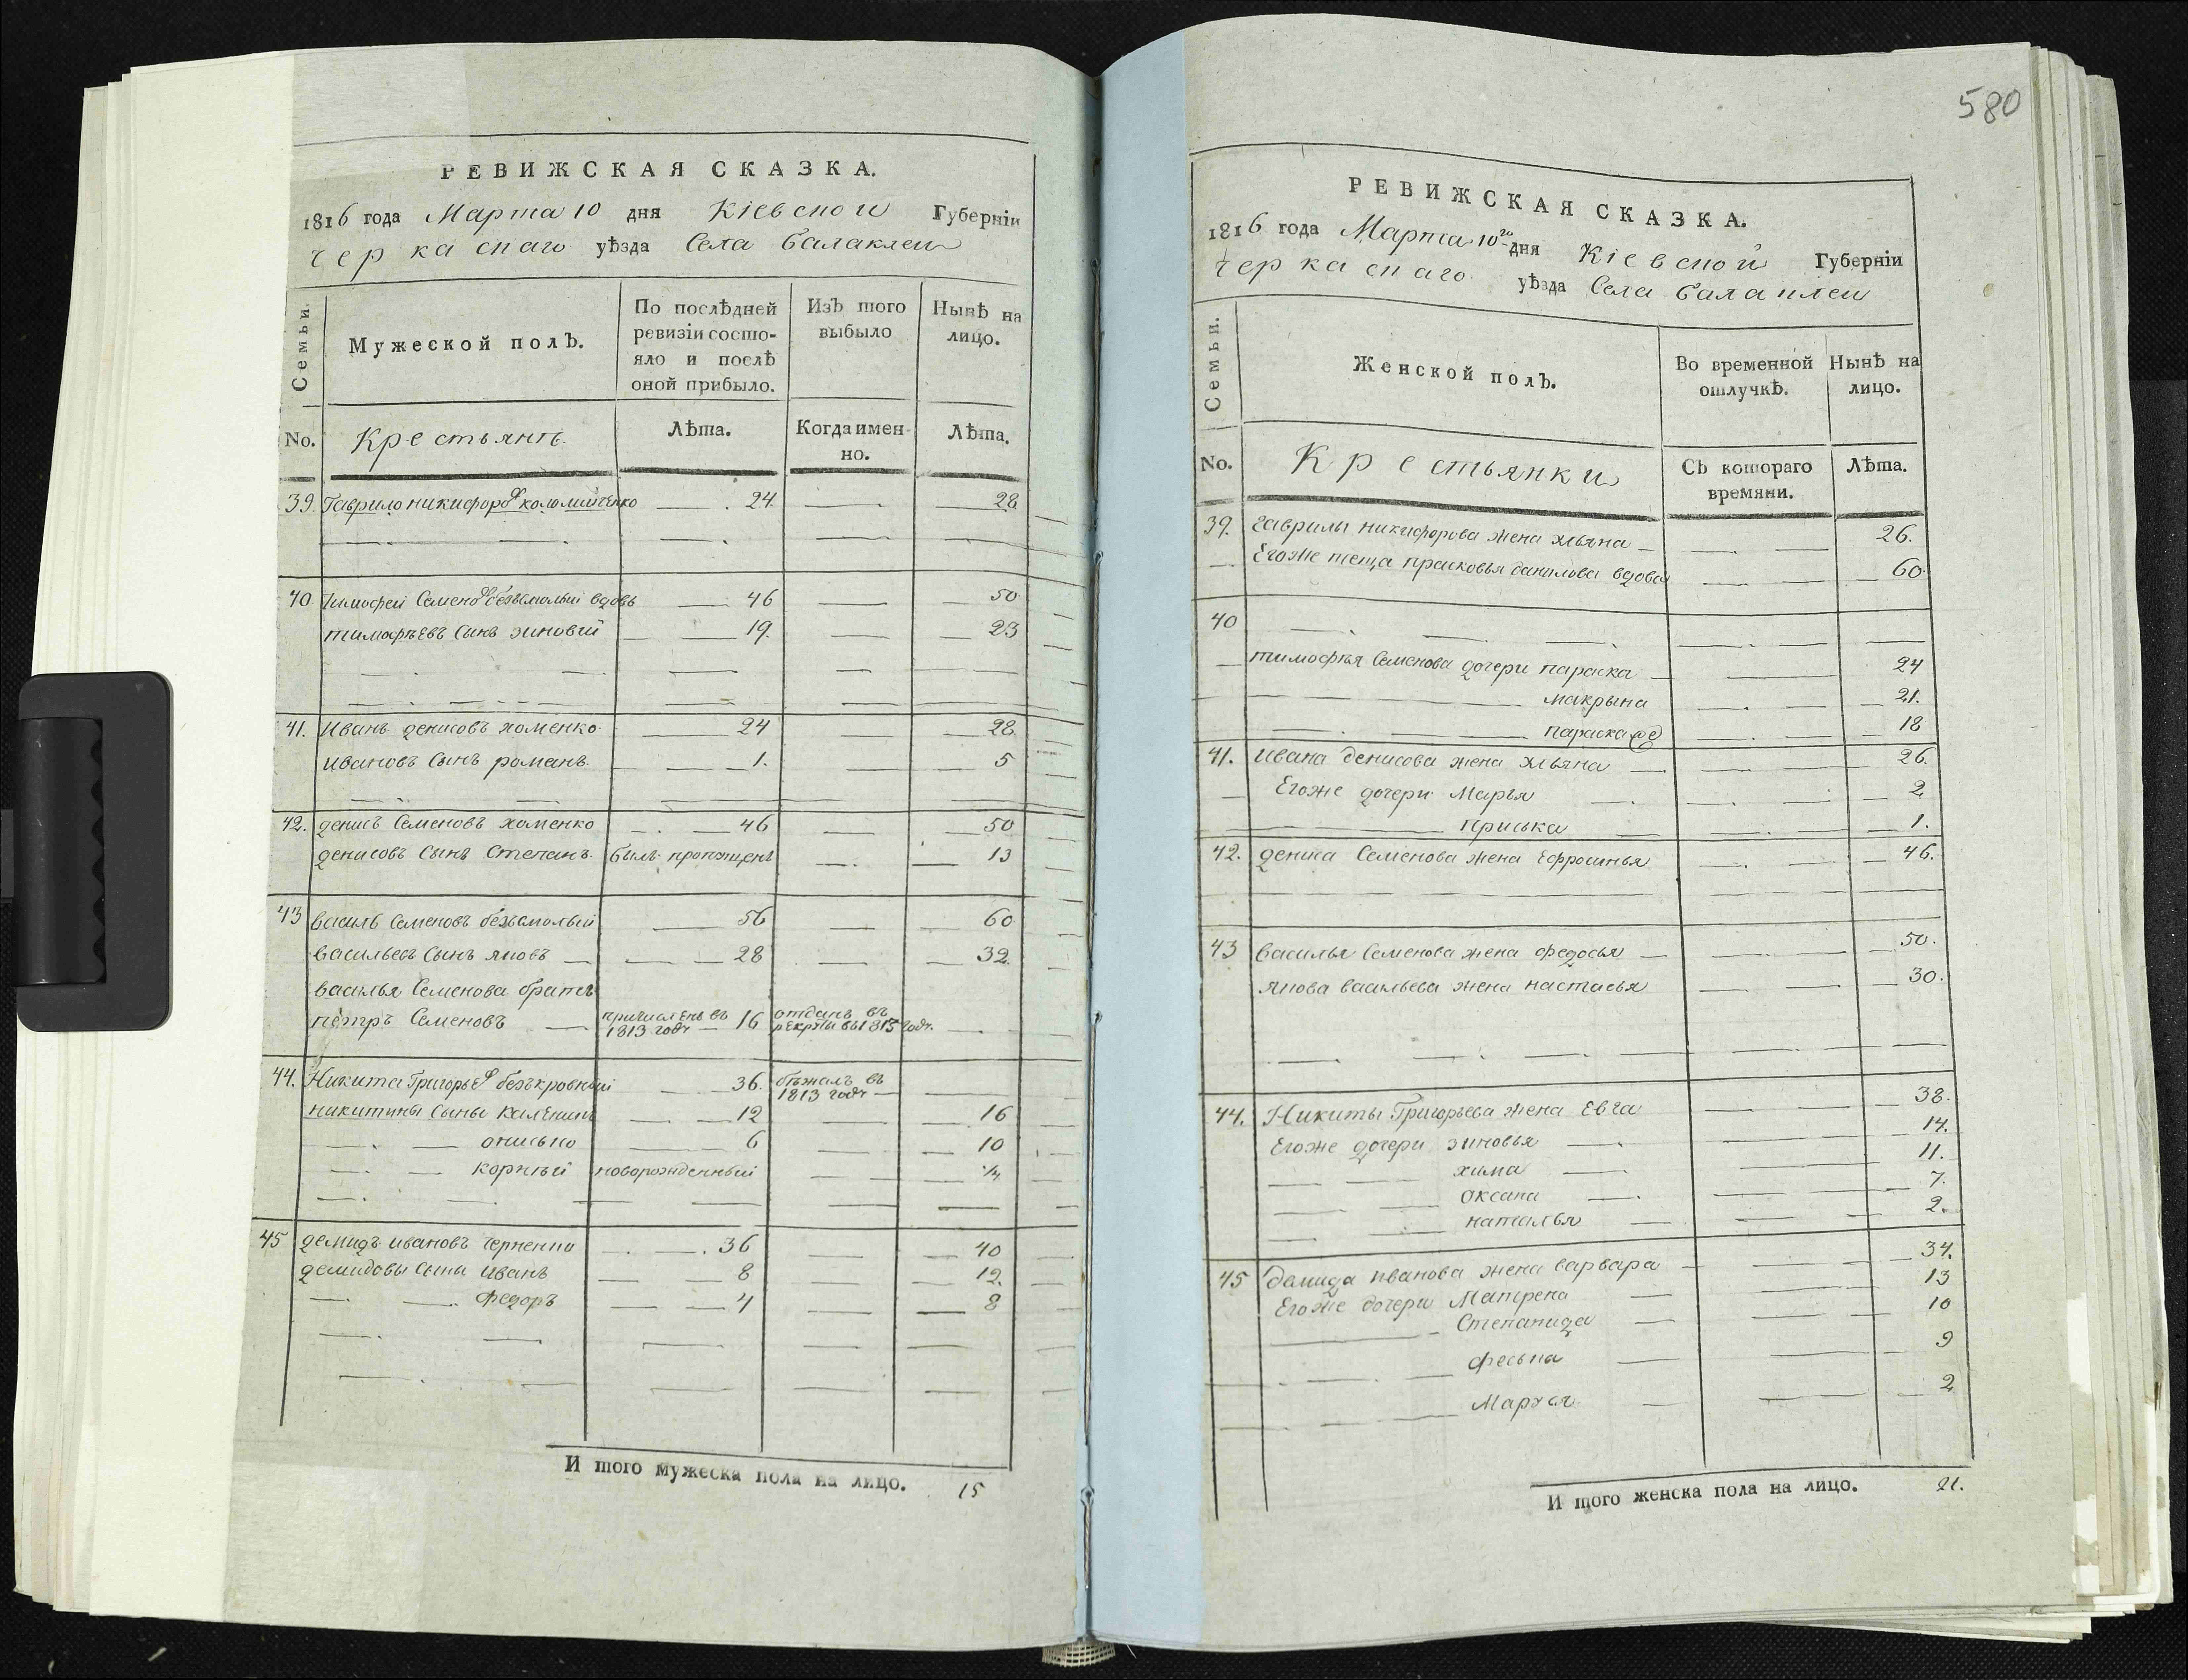 РЕВИЖСКАЯ СКАЗКА.
1816 года Марта 10 дня Кіевской Губерніи
Черкаскаго уѣзда Села Балаклеи
Семьи.
Мужеской полъ.
По послѣдней ревизіи состо-
яло и послѣ
оной прибыло.
Изъ того
выбыло
Нынѣ на
лицо.
No.
Крестьянъ
Лѣта.
Когда имен-
но.
Лѣта.
39. Гаврило никифоровъ коломийченко 24. 28
40 Тимофей Семеновъ безъсмолый вдовъ 46 50
тимофѣевъ Сынъ зиновий 19. 23
41. Иванъ денисовъ хоменко 24 28.
ивановъ Сынъ романъ 1. 5
42. денисъ Семеновъ хоменко 46 50
денисовъ Сынъ Степанъ былъ пропущенъ 13
43 василь Семеновъ безъсмолый 56 60
васильевъ Сынъ яковъ 28 32.
василья Семенова братъ
пётръ Семеновъ причисленъ въ 1813 годѣ 16 отданъ въ рекруты въ 1813 годѣ.
44. Никита Григорьевъ безъкровный 36. бѣжалъ въ 1813 годѣ
никитины Сыны каленикъ 12 16
онисько 6 10
корнѣй новорожденный ¼
45 демидъ ивановъ черненко 36 40
демидовы Сыны иванъ 8 12.
федоръ 4 8
И того мужеска пола на лицо. 15
580
РЕВИЖСКАЯ СКАЗКА.
1816 года Марта 10го дня Кіевской Губерніи
Черкаскаго уѣзда Села балаклеи
Семьи.
Женской полъ.
Во временной
отлучкѣ.
Нынѣ на
лицо.
No.
Крестьянки
Съ котораго
времяни.
Лѣта.
39. Гаврилы никифорова жена ульяна 26.
Егоже теща прасковья данилова вдова 60.
40
тимофѣя Семенова дочери параска 24
макрына 21.
параска 18
41. Ивана денисова жена ульяна 26.
Егоже дочери Марья 2
приська 1.
42. дениса Семенова жена Ефросинья 46.
43 василья Семенова жена федосья 50.
якова васильева жена настасья 30.
44. Никиты Григорьева жена Евга 38.
Егоже дочери зиновья 14.
хима 11.
оксана 7.
наталья 2.
45 демида иванова жена варвара 34.
Егоже дочери Матрена 13
Степанида 10
феська 9
Марья 2
И того женска пола на лицо. 21.